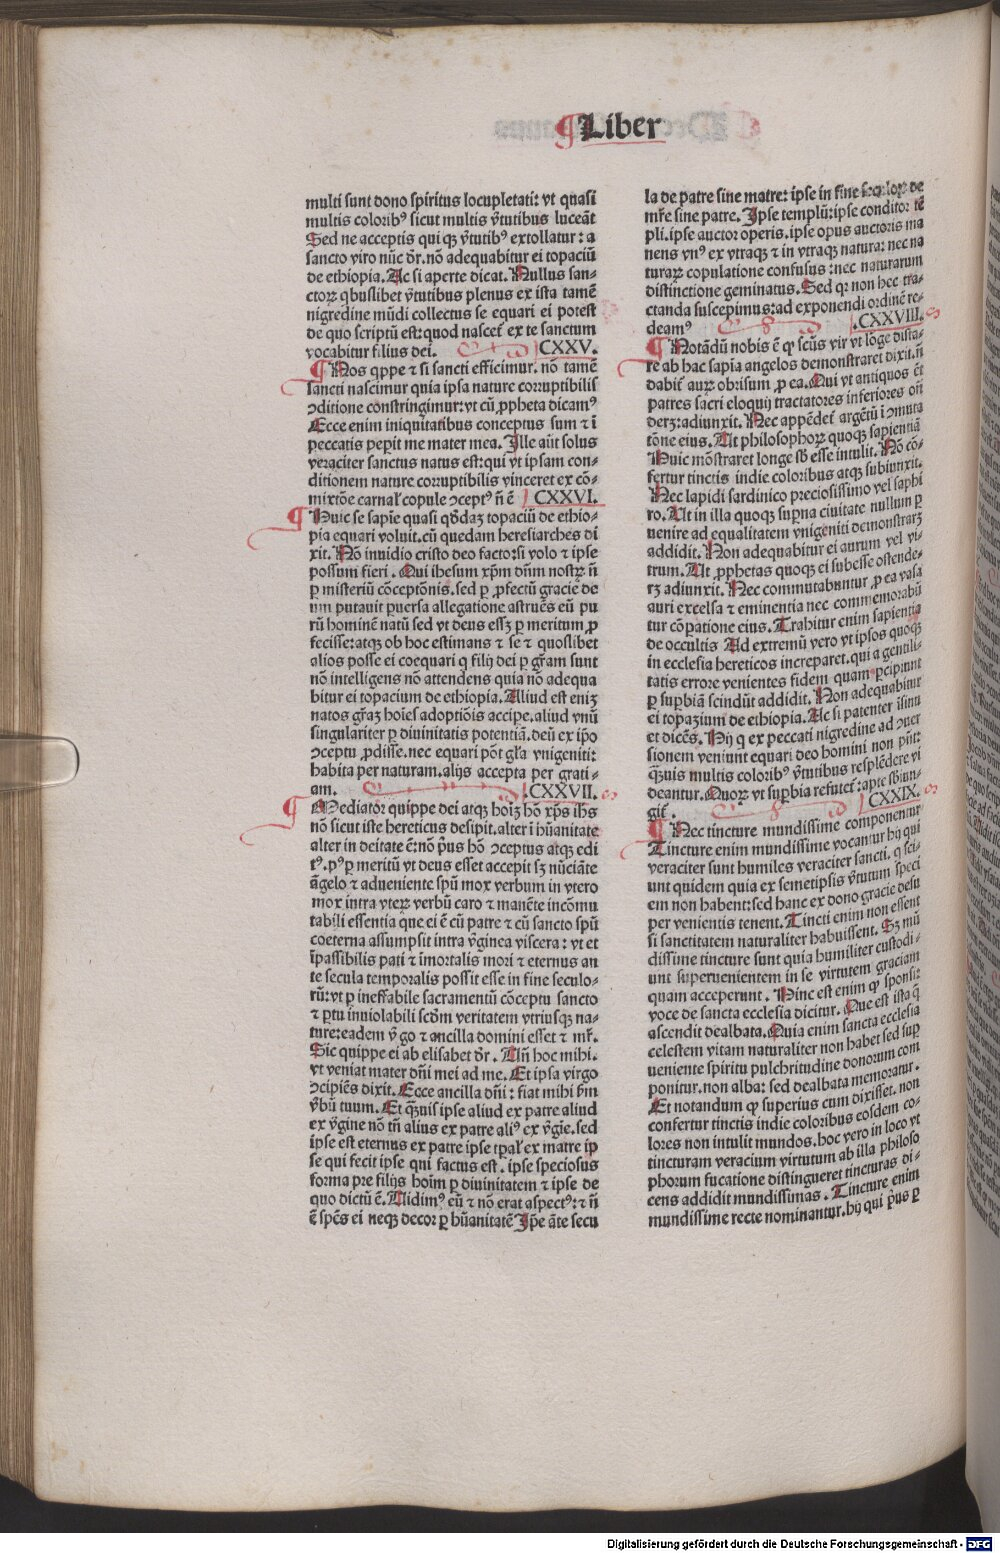 ¶Liber
multi sunt dono spiritus locupletati: vt quasi
multis coloribꝰ sicut multis v̄tutibus luceāt
Sed ne acceptis qui qꝫ v̄tutibꝰ extollatur: a
sancto viro nūc dr̄. nō adequabitur ei topaciū
de ethiopia. Ac si aperte dicat. Nullus san-
ctorꝝ qbuslibet v̄tutibus plenus ex ista tamē
nigredine mūdi collectus se equari ei potest
de quo scriptū est: quod nascet̄ ex te sanctum
vocabitur filius dei. CXXV.
¶ Nos qppe ⁊ si sancti efficimur. nō tamē
sancti nascimur quia ipsa nature corruptibilis
ↄditione cōnstringimur: vt cū ꝓpheta dicamꝰ
Ecce enim iniquitatibus conceptus sum ⁊ ī
peccatis peperit me mater mea. Ille aūt solus
veraciter sanctus natus est: qui vt ipsam con-
ditionem nature corruptibilis vinceret ex cō-
mixtōe carnał copule ↄceptꝰ n̄ ē CXXVI.
¶ Huic se sapie quasi qōdaꝫ topaciū de ethio-
pia equari voluit. cū quedam heresiarches di
xit. Nō inuidio cristo deo facto: si volo ⁊ ipse
possum fieri. Qui ihesum xp̄m dn̄m nostꝝ n̄
ꝑ misteriū cōceptōnis. sed ꝑ ꝓfectū gracie de
um putauit ꝑuersa allegatione astruēs eū pu
rū hominē natū sed vt deus essꝫ ꝑ meritum ꝓ
fecisse: atqꝫ ob hoc estimans ⁊ se ⁊ quoslibet
alios posse ei coequari q filij dei ꝑ gr̄am sunt
nō intelligens nō attendens quia nō adequa
bitur ei topacium de ethiopia. Aliud est eniꝫ
natos gr̄aꝫ hoīes adoptiōis accipe. aliud vnū
singulariter ꝑ diuinitatis potentiā. deū ex ip̄o
ↄceptu ꝓdisse. nec equari pōt gl̄a vnigeniti:
habita per naturam. alijs accepta per grati-
am. CXXVII.
¶ Mediator quippe dei atqꝫ hoīꝫ hō xp̄s ih̄s
nō sicut iste hereticus desipit. alter i hūanitate
alter in deitate ē: nō pͥus hō ↄceptus atqꝫ edi
tꝰ. pꝰ ꝑ meritū vt deus esset accepit sꝫ nūciāte
āgelo ⁊ adueniente spū mox verbum in vtero
mox intra vterꝝ verbū caro ⁊ manēte incōmu
tabili essentia que ei ē cū patre ⁊ cū sancto spū
coeterna assumpsit intra v̄ginea viscera: vt et
īpassibilis pati ⁊ īmortalis mori ⁊ eternus an
te secula temporalis possit esse in fine seculo-
rū: vt ꝑ ineffabile sacramentū cōceptu sancto
⁊ ꝑtu inuiolabili scd̄m veritatem vtriusqꝫ na-
ture: eadem v̄go ⁊ ancilla domini esset ⁊ mr̄.
Sic quippe ei ab elisabet dr̄. Vn̄ hoc mihi.
vt veniat mater dn̄i mei ad me. Et ipsa virgo
ↄcipiēs dixit. Ecce ancilla dn̄i: fiat mihi ẜm
v̄bū tuum. Et qͣuis ipse aliud ex patre aliud
ex v̄gine nō tn̄ alius ex patre aliꝰ ex v̄gīe. sed
ipse est eternus ex patre ipse tpał ex matre ip
se qui fecit ipse qui factus est. ipse speciosus
forma pre filijs hoīm ꝑ diuinitatem ⁊ ipse de
quo dictū ē. Vidimꝰ eū ⁊ nō erat aspectꝰ: ⁊ n̄
ē spēs ei neqꝫ decor ꝑ hūanitatē Ip̄e āte secu
la de patre sine matre: ipse in fine seculoꝝ de
mr̄e sine patre. Ipse templū: ipse conditor tē
pli. ipse auctor operis. ipse opus auctoris ma
nens vnꝰ ex vtraqꝫ ⁊ in vtraqꝫ natura: nec na
turaꝝ copulatione confusus: nec naturarum
distinctione geminatus. Sed qꝛ non hec tra-
ctanda suscepimus: ad exponendi ordinē re-
deamꝰ CXXVIII.
¶ Notādū nobis ē ꝙ scūs vir vt lōge dista-
re ab hac sapīa angelos demonstraret dixit. n̄
dabit̄ aurꝝ obrisum ꝓ ea. Qui vt antiquos ēt
patres sacri eloquij tractatores inferiores on̄
derꝫ: adiunxit. Nec appēdet̄ argētū i ↄmuta
tōne eius. Vt philosophorꝝ quoqꝫ sapientiā
Huic mōstraret longe sb̄ esse intulit. Nō cō-
fertur tinctis indie coloribus atqꝫ subiunxit.
Nec lapidi sardinico preciosissimo vel saphi
ro. Vt in illa quoqꝫ suꝑna ciuitate nullum ꝑ
uenire ad equalitatem vnigeniti demonstrarꝫ
addidit. Non adequabitur ei aurum vel vi-
trum. Vt ꝓphetas quoqꝫ ei subesse ostende-
rꝫ adiunxit. Nec commutabuntur ꝓ ea vasa
auri excelsa ⁊ eminentia nec commemorabū
tur cōꝑatione eius. Trahitur enim sapientia
de occultis Ad extremū vero vt ipsos quoqꝫ
in ecclesia hereticos increparet. qui a gentili-
tatis errore venientes fidem quam ꝑcipiunt
ꝑ suꝑbiā scindūt addidit. Non adequabitur
ei topazium de ethiopia. Ac si patenter īsinu
et dicēs. Hij q ex peccati nigredine ad ↄuer
sionem veniunt equari deo homini non pn̄t:
qͣuis multis coloribꝰ v̄tutibus resplēdere vi
deantur. Quorꝝ vt suꝑbia refutet̄: apte sb̄iun-
git̄. CXXIX.
¶ Nec tincture mundissime componentur
Tincture enim mundissime vocantur hij qui
veraciter sunt humiles veraciter sancti. q sci-
unt quidem quia ex semetipsis v̄tutum speci
em non habent: sed hanc ex dono gracie desu
per venientis tenent. Tincti enim non essent
si sanctitatem naturaliter habuissent. Sꝫ mū
dissime tincture sunt quia humiliter custodi-
unt superuenientem in se virtutem graciam
quam acceperunt. Hinc est enim ꝙ sponsi
voce de sancta ecclesia dicitur. Que est ista q̄
ascendit dealbata. Quia enim sancta ecclesia
celestem vitam naturaliter non habet sed suꝑ
ueniente spiritu pulchritudine donorum com
ponitur. non alba: sed dealbata memoratur.
Et notandum ꝙ superius cum dixisset. non
confertur tinctis indie coloribus eosdem co-
lores non intulit mundos. hoc vero in loco vt
tincturam veracium virtutum ab illa philoso
phorum fucatione distingueret tincturas di-
cens addidit mundissimas. Tincture enim
mundissime recte nominantur. hij qui pͥus ꝑ
Digitalisierung gefördert durch die Deutsche Forschungsgemeinschaft - DFG